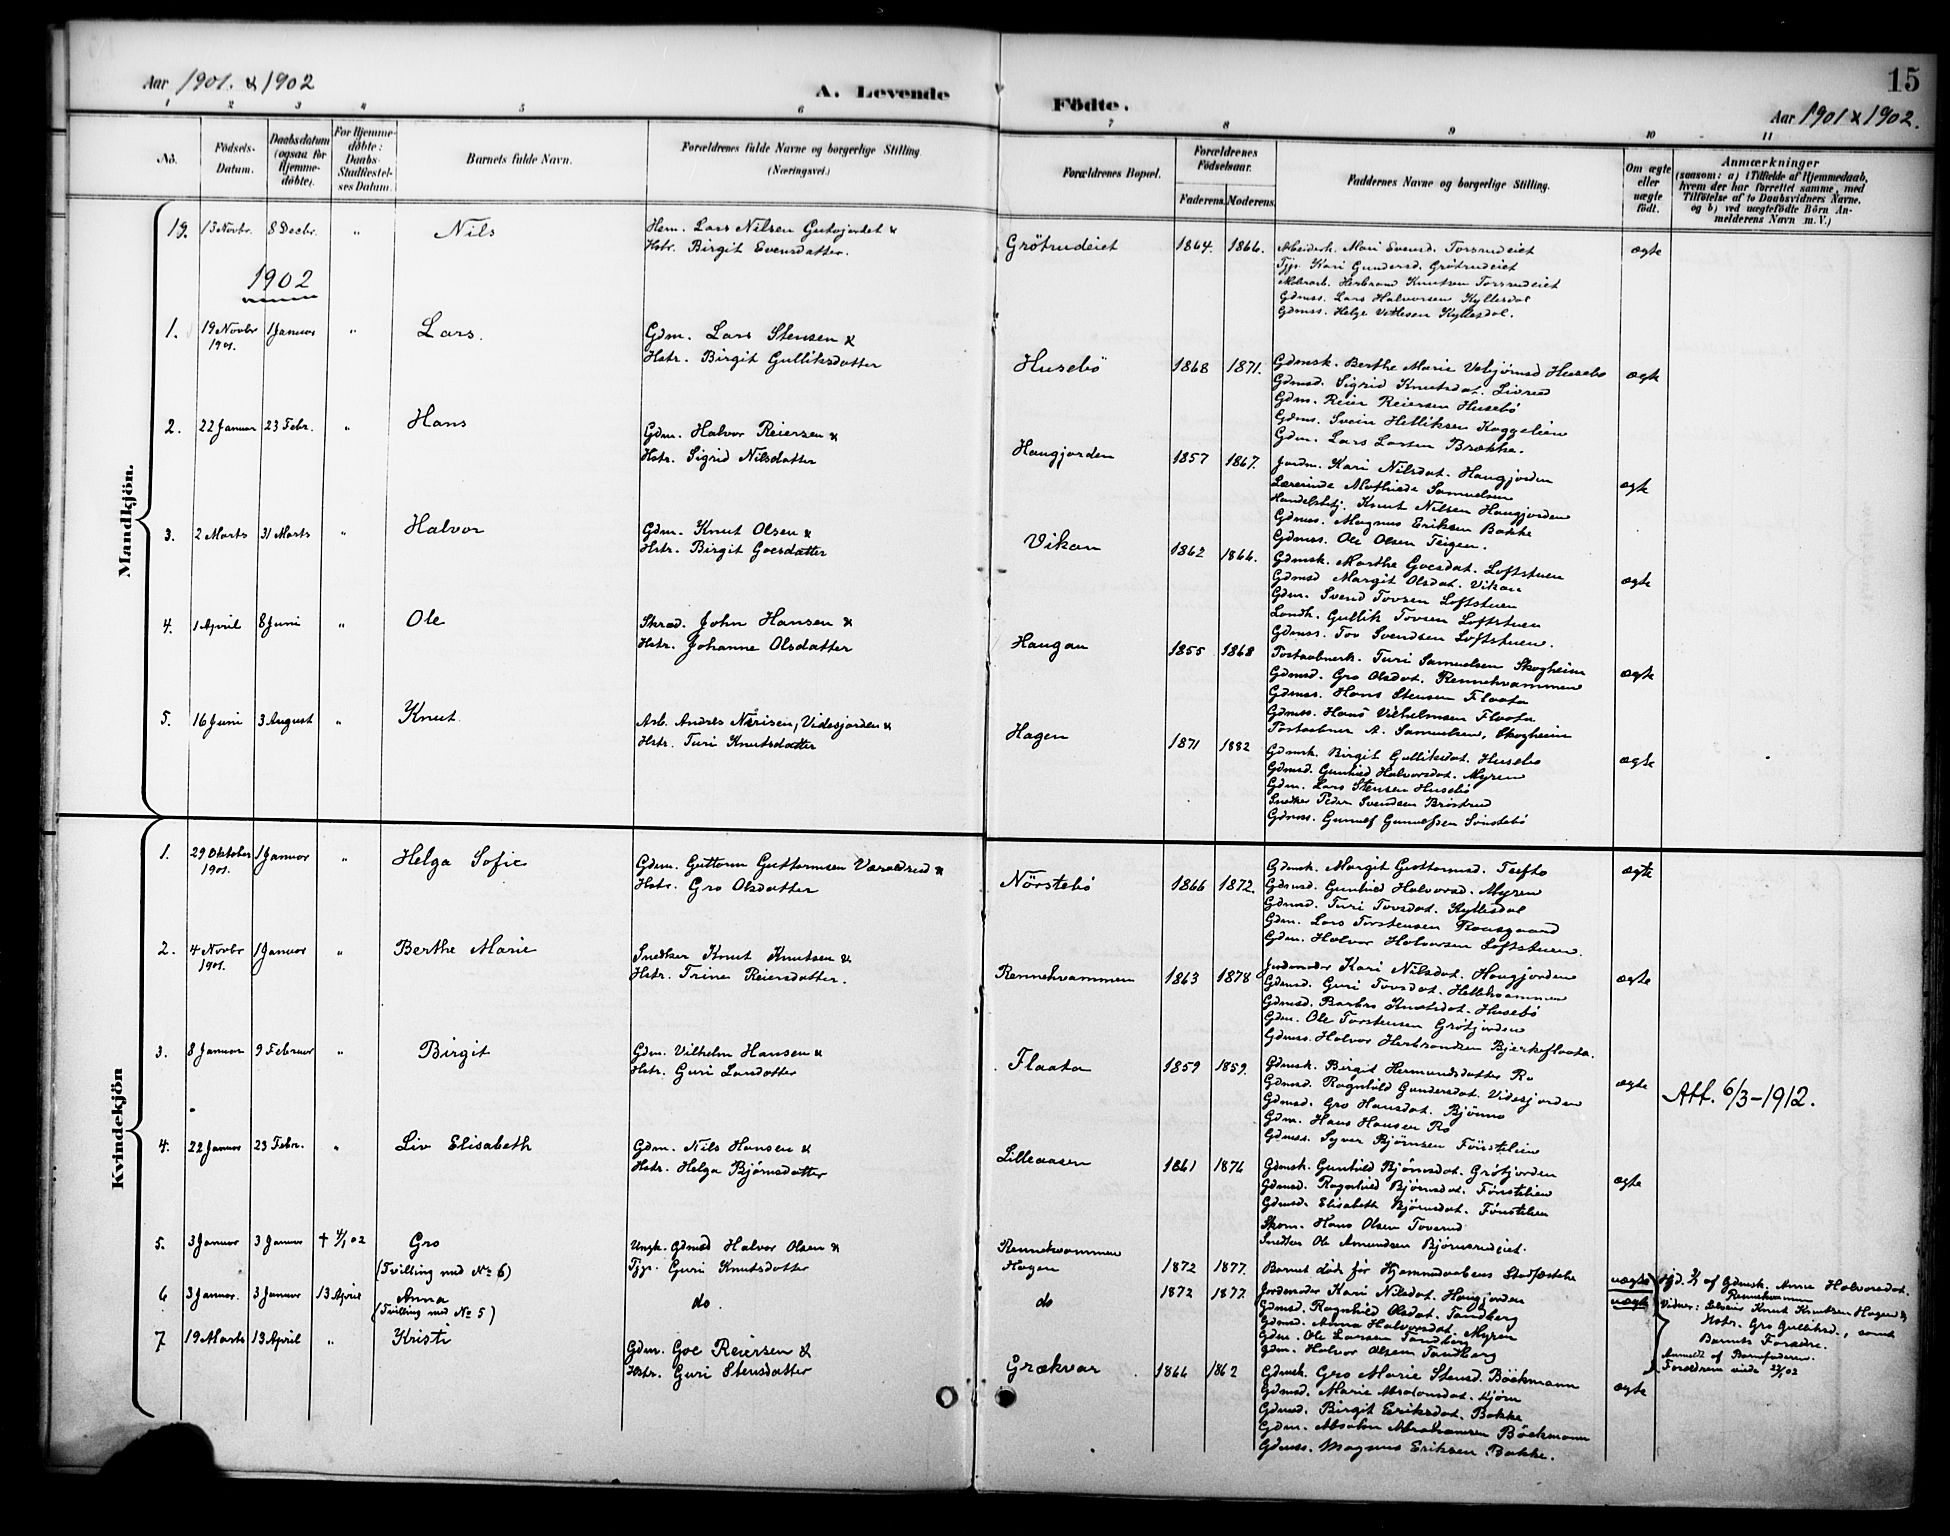 Aar 1901. & 1902
A. Levende Födte.
15
Aar 1901 & 1902.
1 2 3 4 5 6 7 8 9 10 11
No.
Födsels-Datum.
Daabsdatum (ogsaa for Hjemme-döbte).
For Hjemme-döbte: Daabs-Stadfæstel-ses Datum.
Barnets fulde Navn.
Forældrenes fulde Navne og borgerlige Stilling. (Næringsvei.)
Forældrenes Bopæl.
Forældrenes Födselsaar.
Faderens. Moderens.
Faddernes Navne og borgerlige Stilling.
Om ægte eller uægte födt.
Anmærkninger
(saasom: a) i Tilfælde af Hjemmedaab, hvem der har forrettet samme, med Tilföielse af to Daabsvidners Navne. og b) ved uægtefödte Börn An-melderens Navn m. V.)
Mandkjön.
19. 13 Novbr. 8 Decbr. " Nils
Hem. Lars Nilsen Gutujordet &
Hstr. Birgit Evensdatter.
Grötrudeiet 1864. 1866.
Arbeidersk. Mari Evensd. Torsrudeiet
Tjp. Kari Gundersd. Grötrudeiet
Herbrand Knutsen Torsrudeiet
Gdmss. Lars Halvorsen Kyllesdal
Gdmss. Helge Vetlesen Kyllesdal.
ægte
1902
1. 19 Novbr 1901. 1 Januar " Lars.
Gdm. Lars Stensen &
Hstr. Birgit Gulliksdatter
Husebö 1868 1871.
Gdmsk. Berthe Marie Vebjörnsd Husebo
Gdmsd. Sigrid Knutsdat. Livrud
Gdm. Reier Reiersen Husebö
Gdms. Svein Helliksen Koggelien
Gdm. Lars Larsen Brække.
ægte
2. 22 Januar 23 Febr. " Hans
Gdm. Halvor Reiersen &
Hstr. Sigrid Nilsdatter
Haugjorden 1857 1867.
Jordm. Kari Nilsdat. Haugjorden
Lærerinde Mathilde Samuelsen
Handelsbetj. Knut Nilsen Haugjorden
Gdmss. Magnus Eriksen Bakke
Gdmss. Ole Olsen Teigen.
ægte
3. 2 Marts 31 Marts " Halvor
Gdm. Knut Olsen &
Hstr. Birgit Goesdatter
Vikan 1862 1866.
Gdmsk. Marthe Goesdat. Loftstuen
Gdmsd Margit Olsdat. Vikan
Gdm. Svend Tovsen Loftstuen
Landh. Gullik Tovsen Loftstuen
Gdmss. Tov Svendsen Loftstuen.
ægte
4. 1 April 8 Juni " Ole
Skræd. John Hansen &
Hstr. Johanne Olsdatter
Haugan 1855 1868
Postaabnersk. Turi Samuelsen Skogheim
Gdmsd. Gro Olsdat. Rennehvammen
Gdmss. Hans Stensen Flaata
Gdmss. Hans Vilhelmsen Flaata
Postaabner A. Samuelsen, Skogheim
ægte
5. 16 Juni 3 August " Knut.
Arb. Andres Nerisen, Videsjorden &
Hstr. Turi Knutsdatter
Hagen 1871 1882
Gdmsk. Birgit Gulliksdat. Husebö
Gdmsd. Gunhild Halvorsdat. Myren
Gdm. Lars Stensen Husebö
Snedker Peder Svendsen Bröstrud
Gdmss. Gunulf Gunulfsen Sönstebö
ægte
Kvindekjön
1. 29 Oktober 1901. 1 Januar " Helga Sofie
Gdm. Guttorm Guttormsen Væraldrud &
Hstr. Gro Olsdatter
Nörstebö 1866 1872.
Gdmsk. Margit Guttormsd. Teefto
Gdmsd. Gunhild Halvorsd. Myren
Gdmsd. Turi Tovsdat. Kyllesdal
Gdm. Lars Torstensen Raasgaard
Gdm. Halvor Halvorsen Loftstuen.
ægte
2. 4 Novbr 1901. 1 Januar " Berthe Marie
Snedker Knut Knutsen &
Hstr. Trine Reiersdatter.
Rennehvammen 1863 1878
Jordmoder Kari Nilsdat. Haugjorden
Gdmsd. Guri Tovsdat. Hellehvammen
Gdmsd. Barbro Knutsdat. Husebö
Gdm. Ole Torstensen Grötjorden
Gdmss. Halvor Herbrandsen Bjerkeflaata.
ægte
3. 8 Januar 9 Februar " Birgit
Gdm. Vilhelm Hansen &
Hstr. Guri Larsdatter
Flaata 1859 1859.
Gdmsk. Birgit Hermundsdatter Ro
Gdmsd. Ragnhild Gundersdat. Videsjorden
Gdmsd. Gro Hansdat. Björnno
Gdm. Hans Hansen Ro
Gdmss. Syver Björnsen Fönstelien
ægte
Att. 6/3-1912.
4. 22 Januar 23 Febr. " Liv Elisabeth
Gdm. Nils Hansen &
Hstr. Helga Bjørnsdatter
Lilleaasen 1861 1876
Gdmsk. Gunhild Björnsdat. Grötjorden
Gdmsd. Ragnhild Björnsdat. Fönstelien
Gdmsd. Elisabeth Björnsdat. Fönstelien
Skom. Hans Olsen Toverud
Snedker Ole Amundsen Björnsrudeiet.
ægte
5. 3 Januar 3 Januar † 4/1 02 Gro
(Tvilling med No 6)
Ungk. Gdmsd Halvor Olsen &
Tjp. Guri Knutsdatter
Rennehvammen
Hagen 1872 1877.
Barnet döde för Hjemmedaabens Stadfæstelse
uægte
6 3 Januar. 3 Januar 13 April Anna
(Tvilling med No 5)
do.
do 1872 1877.
Jordemoder Kari Nilsdat. Haugjorden
Gdmsd. Ragnhild Olsdat. Tandberg
Gdmsd. Anna Halvorsdat. Myren
Gdm. Ole Larsen Tandberg
Gdm. Halvor Olsen Tandberg
uægte
Hjd. 3/1 af Gdmsk. Anne Halvorsdat. Rennehvammen
Vidner: Knut Knutsen Hagen &
Hstr. Gro Gulliksd., samt
Barnets Forældre.
Anmeldt af Barnefaderen.
Forældrene viede 22/1 02
7 19 Marts 13 April " Kristi
Gdm. Goe Reiersen &
Hstr. Guri Stensdatter
Grækvar 1866 1862
Gdmsk. Gro Marie Stensd. Böckmann
Gdmsd. Marie Absalonsdat. Kjörn
Gdmsd. Birgit Eriksdat. Bakke
Gdm. Absalon Abrahamsen Böckmann
Gdmss. Magnus Eriksen Bakke.
ægte